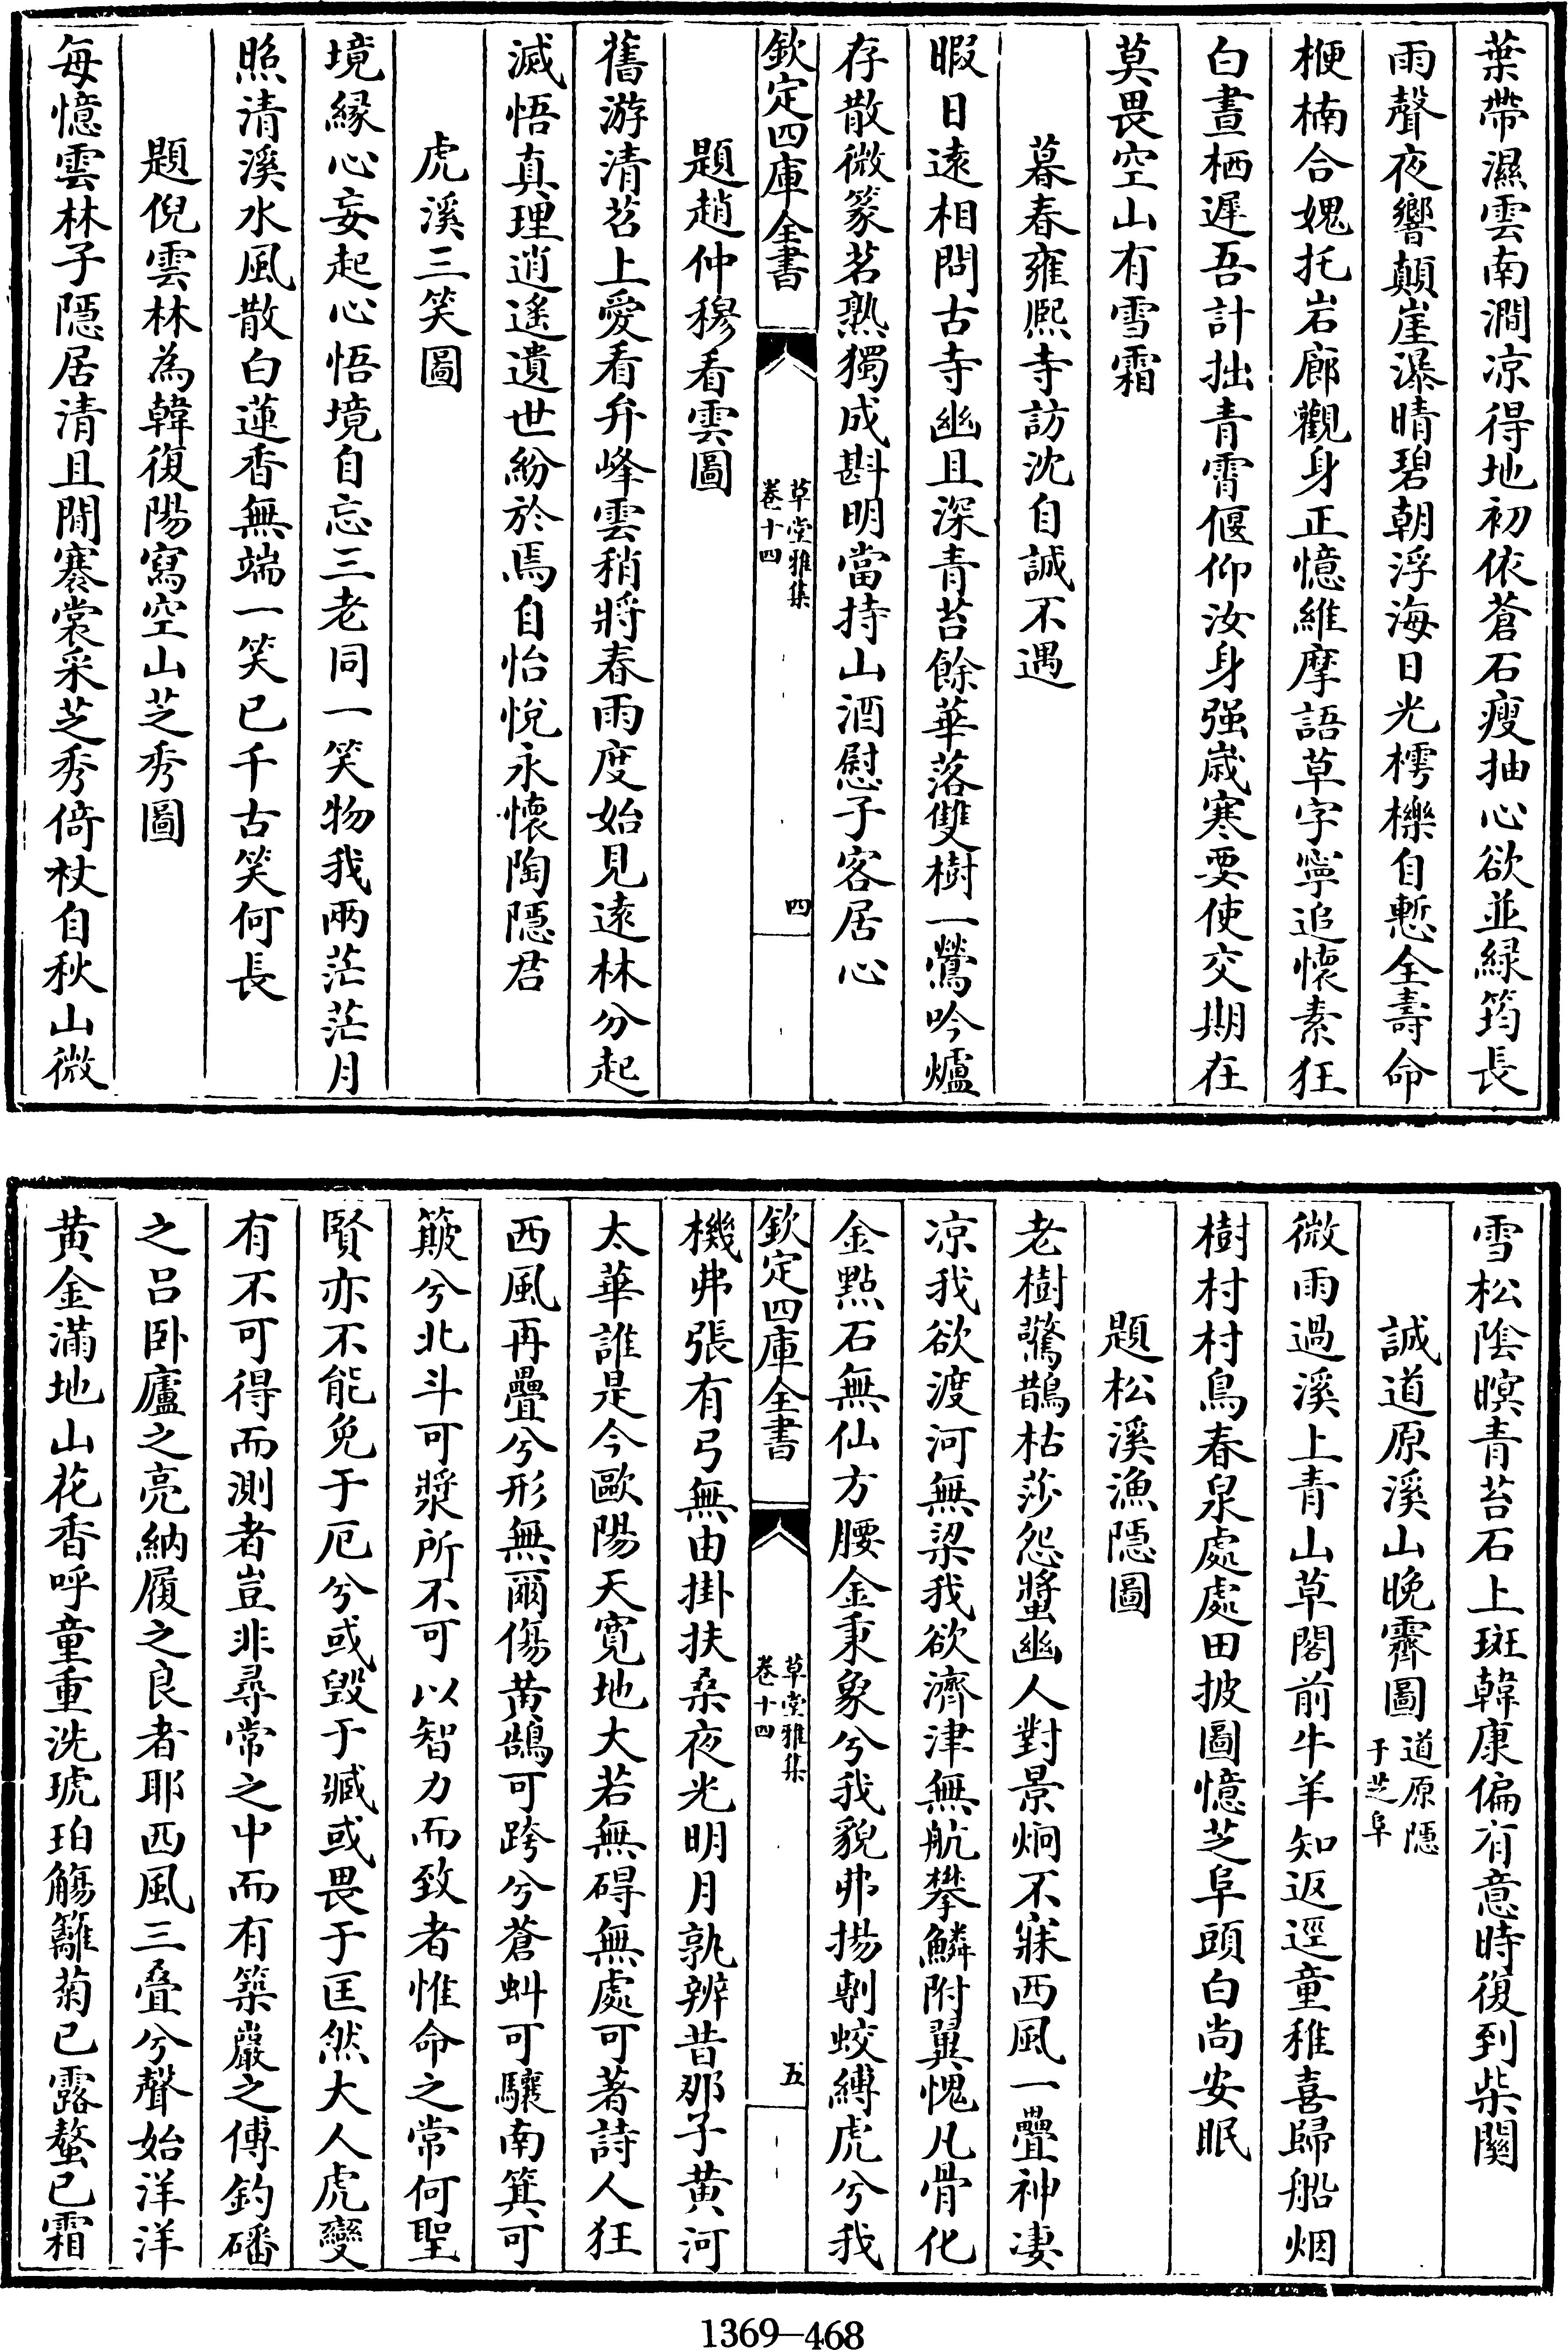 葉帶濕雲南澗凉得地初依蒼石瘦抽心欲並緑筠長
雨聲夜響顛崖瀑晴碧朝浮海日光樗櫟自慙全壽命
楩楠合媿托岩廊觀身正憶維摩語草字寧追懷素狂
白晝栖遲吾計拙青霄偃仰汝身强歳寒要使交期在
莫畏空山有雪霜
暮春雍熙寺訪沈自誠不遇
暇日遠相問古寺幽且深青苔餘華落雙樹一鶯吟爐
存散微篆茗熟獨成斟明當持山酒慰子客居心
欽定四庫全書
草堂雅集
卷十四
四
題趙仲穆看雲圖
舊游清苕上愛看弁峰雲稍將春雨度始見遠林分起
滅悟真理逍遙遺世紛於焉自怡悅永懷陶隱君
虎溪三笑圖
境縁心妄起心悟境自忘三老同一笑物我兩茫茫月
照清溪水風散白蓮香無端一笑已千古笑何長
題倪雲林為韓復陽寫空山芝秀圖
每憶雲林子隱居清且閒褰裳采芝秀倚杖自秋山微
雪松陰暝青苔石上斑韓康偏有意時復到柴關
誠道原溪山晚霽圖道原隱
于芝阜
微雨過溪上青山草閣前牛羊知返逕童稚喜歸船烟
樹村村鳥春泉處處田披圖憶芝阜頭白尚安眠
題松溪漁隱圖
老樹驚鵲枯莎怨螿幽人對景炯不寐西風一疊神凄
凉我欲渡河無梁我欲濟津無航攀鱗附翼愧凡骨化
金點石無仙方腰金秉象兮我貌弗揚剸蛟縛虎兮我
欽定四庫全書
草堂雅集
卷十四
五
機弗張有弓無由掛扶桑夜光明月孰辨昔那子黄河
太華誰是今歐陽天寛地大若無碍無處可著詩人狂
西風再疊兮形無爾傷黄鵠可跨兮蒼虯可驤南箕可
簸兮北斗可漿所不可以智力而致者惟命之常何聖
賢亦不能免于厄兮或毁于臧或畏于匡然大人虎變
有不可得而測者豈非尋常之中而有築巖之傅釣磻
之呂卧廬之亮納履之良者耶西風三叠兮聲始洋洋
黄金滿地山花香呼童重洗琥珀觴籬菊已露螯已霜
1369—468